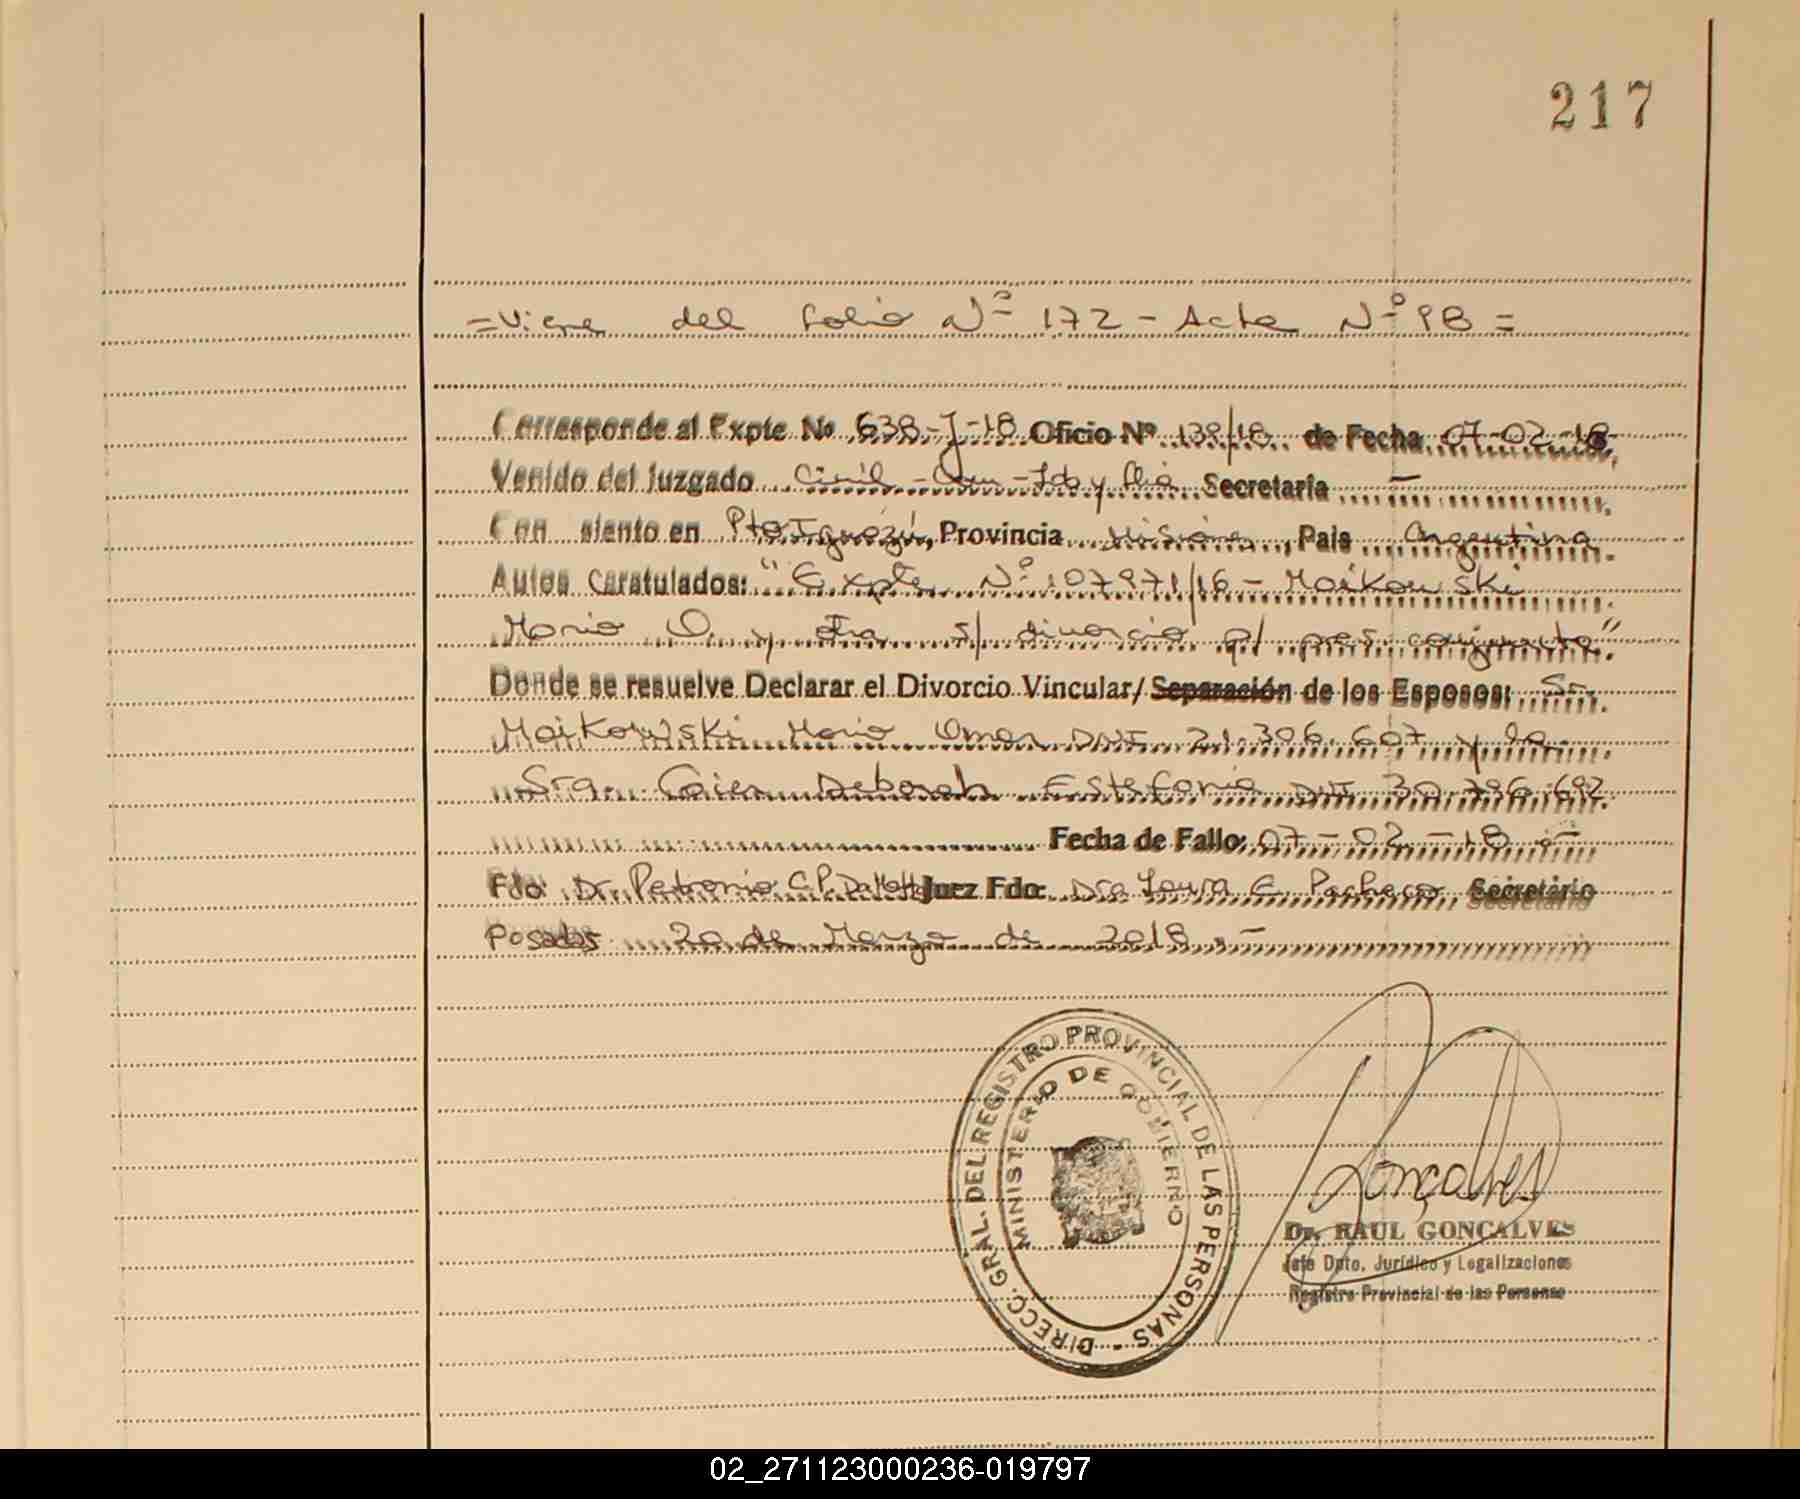 217
=Viene del folio Nº 172 - Acta Nº 98 =
Corresponde al Expte Nº 638-J-18 Oficio Nº 139/18 de Fecha 07-02-18
Venido del Juzgado Civil - Com - Lab y Flia Secretaría —
Con siento en Pto Iguazú, Provincia Misiones, País Argentina
Autos Caratulados: "Expte Nº 107971/16 - Maikowski
Mario O. y otra s/ divorcio p/ pres. conjunta"
Donde se resuelve Declarar el Divorcio Vincular/ Separación de los Esposos: Sr.
Maikowski Mario Omar DNI 21.306.607 y la
Sra. Deborah Estefania DNI 30.796.692
Fecha de Fallo: 07-02-18.-
Fdo Dr. Petronio C.P. Juez Fdo: Dra Laura E. Pacheco Secretario
Posadas 20 de Marzo de 2018.-
DIRECC. GRAL. DEL REGISTRO PROVINCIAL DE LAS PERSONAS -
MINISTERIO DE GOBIERNO
Gonçalves
Dr. RAUL GONÇALVES
Jefe Dpto. Jurídico y Legalizaciones
Registro Provincial de las Personas
02_271123000236-019797